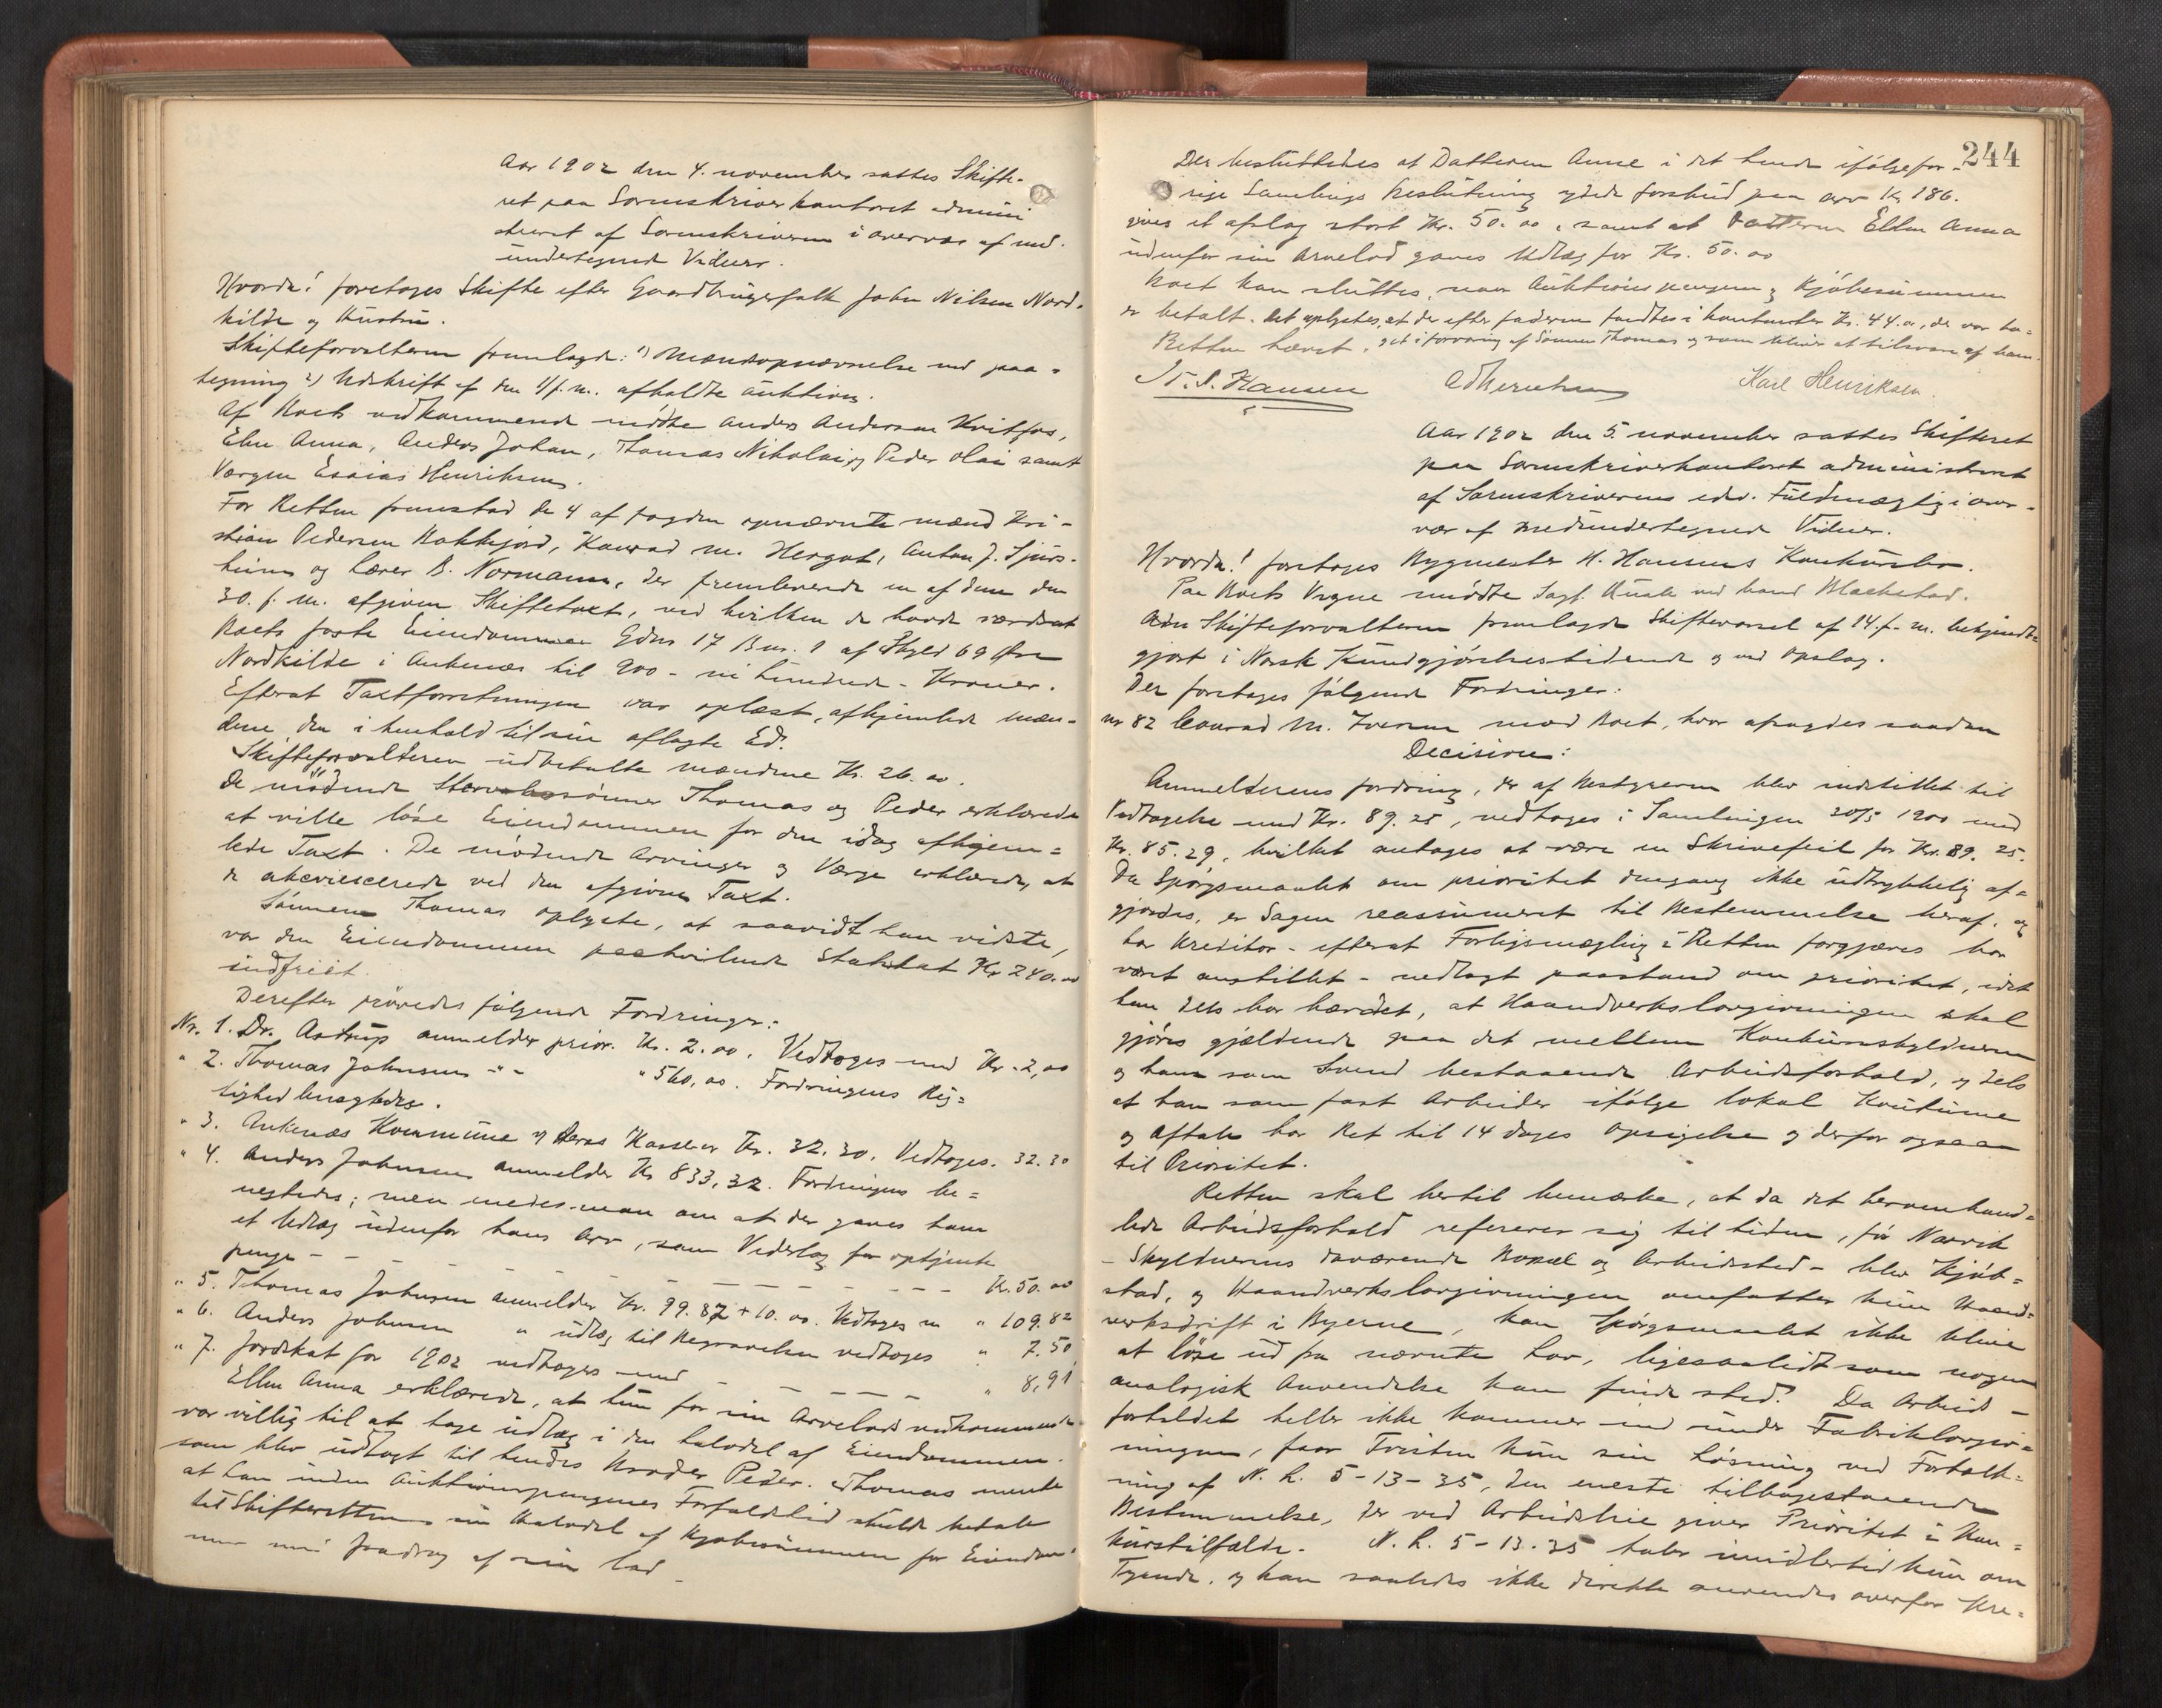 Aar 1902 den 4. november sattes Skifte-
ret paa Sorenskriverkontoret admini
streret af Sorenskriveren i overvær af med-
undertegnede Vidner.
Hvorda! foretages Skifte efter Gaardbrugerfolk John Nilsen Nord-
kilde og Hustru.
Skifteforvalteren fremlagde: 1) Mændsopnævnelse med paa-
tegning 2) Udskrift af den 1/f. m. afholdte auktion.
Af Boets vedkommende mødte Anders Andersen Kvitfos,
Elen Anna, Anders Johan, Thomas Nikolai og Peder Olai samt
Værgen Esaias Henriksen.
For Retten fremstod de 4 af fogden opnævnte mænd Kri-
stian Pedersen Bakkejord, Konrad M. Hergot, Anton J. Sjurs-
heim og Lærer B. Normann, der fremleverede en af dem den
30. f. m. afgiven Skiftetaxt, ved hvilken de havde værdsat
Boets faste Eiendommen Gdns 17 Bns. 1 af Skyld 69 Øre
Nordkilde i Ankenæs til 900 - ni hundrede - Kroner.
Efterat Taxtforretningen var oplæst, afhjemlede mæn-
dene den i henhold til sin aflagte Ed.
Skifteforvalteren udbetalte mændene Kr. 26.00.
De mødende Stervbosønner Thomas og Peder erklærede
at ville løse Eiendommen for den idag afhjem=
lede Taxt. De mødende Arvinger og Værge erklærede, at
de akcviescerede ved den afgivne Taxt.
Sønnen Thomas oplyste, at saavidt han vidste,
var den Eiendommen paahvilende Kr 240.00
indfriet.
Derefter prøvedes følgende Fordringer:
Nr. 1. Dr. Astrup anmelder prior. Kr. 2.00. Vedtoges med Kr. 2,00
" 2. Thomas Johnsen -"- " 560,00. Fordringens Rig=
tighed benægtedes.
" 3. Ankenæs Kommune v/ Kasserer Kr. 32.30. Vedtoges. 32.30
" 4. Anders Johnsen anmelder Kr 833,32. Fordringen be=
negtedes; men enedes man om at der gaves ham
et Udlæg udenfor hans Arv, som Vederlag for optjente
penge - - - - - - - Kr. 50.00
" 5. Thomas Johnsen anmelder Kr. 99.82 + 10.00. Vedtoges m " 109.82
" 6. Anders Johnsen " udlæg til Begravelsen vedtoges " 7.50
" 7. Jordskat for 1902 vedtoges med - - - - " 8,91
Ellen Anna erklærede, at hun for sin Arvelods vedkommende
var villig til at tage udlæg i den halvdel af Eiendommen
som blev udlagt til hendes Broder Peder. Thomas mente
at han inden Auktionspengenes Forfaldstid skulde betale
til Skifteretten sin Halvdel af Kjøbesummen for Eiendom=
men med fradrag af sin lod -
244
Der besluttedes at Datteren Anne i det hende ifølge for-
rige Samlings Beslutning ydede forskud paa arv Kr. 186.
gives et afslag stort Kr. 50.00, samt at Datteren Ellen Anna
udenfor sin Arvelod gaves Udlæg for Kr. 50.00
Boet kan sluttes, naar Auktionspengene og Kjøbesummen
er betalt. Det oplystes, at der efter faderen fandtes i kontanter Kr. 44.00, der var ta=
Retten hævet. get i forvaring af Sønnen Thomas og som bliver at tilsvare af ham.
Hansen Karl Henriksen.
Aar 1902 den 5. november sattes Skifteret
paa Sorenskriverkontoret administreret
af Sorenskriverens edsv. Fuldmægtig i over-
vær af medundertegnede Vidner.
Hvorda! foretoges Bygmester H. Hansens Konkursbo.
Paa Boets Vegne mødte Sagf. Kunde ved Blackstad.
Adm Skifteforvalteren fremlagde Skiftevarsel af 14. f. m. bekjendt=
gjort i Norsk Kundgjørelsestidende og ved Opslag.
Der foretoges følgende Fordringer:
nr 82 Conrad M. Iversen mod Boet, hvor afsagdes saadan
Decision:
Anmelderens fordring, der af Bestyreren blev indstillet til
Vedtagelse med Kr. 89.25, vedtoges i Samlingen 30/5 1900 med
Kr. 85.29, hvilket antages at være en Skrivefeil for Kr. 89.25.
Da Spørgsmaalet om prioritet dengang ikke udtrykkelig af=
gjordes, er Sagen reassumeret til Bestemmelse heraf, og
har Kreditor - efterat Forligsmægling i Retten forgjæves har
været anstillet - nedlagt paastand om prioritet, idet
han dels har hævdet, at Haandverkslovgivningen skal
gjøres gjældende paa det mellem Konkursskyldneren
og ham som Svend bestaaende Arbeidsforhold, og dels
at han som fast Arbeider ifølge lokal Koutume
og Aftale har Ret til 14 dages Opsigelse og derfor ogsaa
til Prioritet.
Retten skal hertil bemærke, at da det heromhand=
lede Arbeidsforhold refererer sig til tiden, før Narvik
- Skyldnerens daværende Bopæl og Arbeidssted - blev Kjøb=
stad, og Haandverkslovgivningen omfatter kun Haand=
verksdrift i Byerne, kan Spørgsmaalet ikke blive
at løse ud fra nævnte Lov, ligesaalidt som nogen
analogisk Anvendelse kan finde sted. Da Arbeids-
forholdet heller ikke kommer ind under Fabriklovgiv=
ningen, faar Tvisten kun sin Løsning ved Fortolk=
ning af N. L. 5-13-35, den eneste tilbagestaaende
Bestemmelse, der ved Arbeidsleie giver Prioritet i Kon=
kurstilfælde. N. L. 5-13-35 taler imidlertid kun om
Tyende, og kan saaledes ikke direkte anvendes overfor Kre=